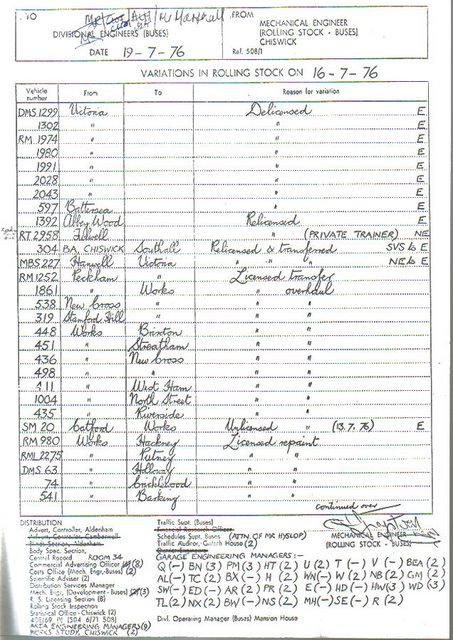 TO
Marshall
DIVISIONAL ENGINEERS (BUSES)
DATE 19-7-76
FROM
MECHANICAL ENGINEER
(ROLLING STOCK - BUSES)
CHISWICK
Ref. 508/1
VARIATIONS IN ROLLING STOCK ON 16-7-76
Vehicle number From To Reason for variation
DMS 1299 Victoria Delicensed E
1302 " " E
RM 1974 " " E
1980 " " E
1991 " " E
2028 " " E
2043 " " E
597 Battersea " E
1392 Abbey Wood Relicensed E
RT 2958 Elwell " (PRIVATE TRAINER) NE
304 BA, CHISWICK Southall Relicensed & transferred SVS to E
MBS 227 Hanwell Victoria " " " NE to E
RM 1252 Peckham " Licensed transfer
1861 " Works " overhaul
538 New Cross " " "
319 Stamford Hill " " "
448 Works Brixton " "
451 " Streatham " "
436 " New Cross " "
498 " " " "
411 " West Ham " "
1004 " North Street " "
435 " Riverside " "
SM 20 Catford Works Unlicensed " (13.7.76) E
RM 980 Works Hackney Licensed repaint
RML 2275 " Putney " "
DMS 63 " Holloway " "
74 " Cricklewood " "
541 " Barking " "
continued over
MECHANICAL ENGINEER
(ROLLING STOCK - BUSES)
DISTRIBUTION
Advert. Controller, Aldenham
Body Spec. Section,
Central Record ROOM 34
Commercial Advertising Officer (8)
Costs Office (Mech. Engr.-Buses) (2)
Scientific Adviser (2)
Distribution Services Manager
Mech. Engr. (Development - Buses) (3)
R. S. Licensing Section (8)
Rolling Stock Inspection
Statistical Office - Chiswick (2)
AREA ENGINEERING MANAGERS (9)
WORKS STUDY, CHISWICK (2)
Traffic Supt. (Buses)
Financial Research Officer
Schedules Supt. Buses (ATTN. OF MR HYSLOP)
Traffic Auditor, Clutch House (2)
GARAGE ENGINEERING MANAGERS :-
Q (-) BN (3) PM (3) HT (2) U (2) T (-) V (-) BEA (2)
AL (-) TC (2) BX (-) H (2) WN (-) W (2) NB (2) GM (2)
SW (-) ED (-) AR (2) PR (2) E (-) HD (-) HW (3) WD (3)
TL (2) NX (2) BW (-) NS (2) MH (-) SE (-) R (2)
Div. Operating Manager (Buses) Mansion House